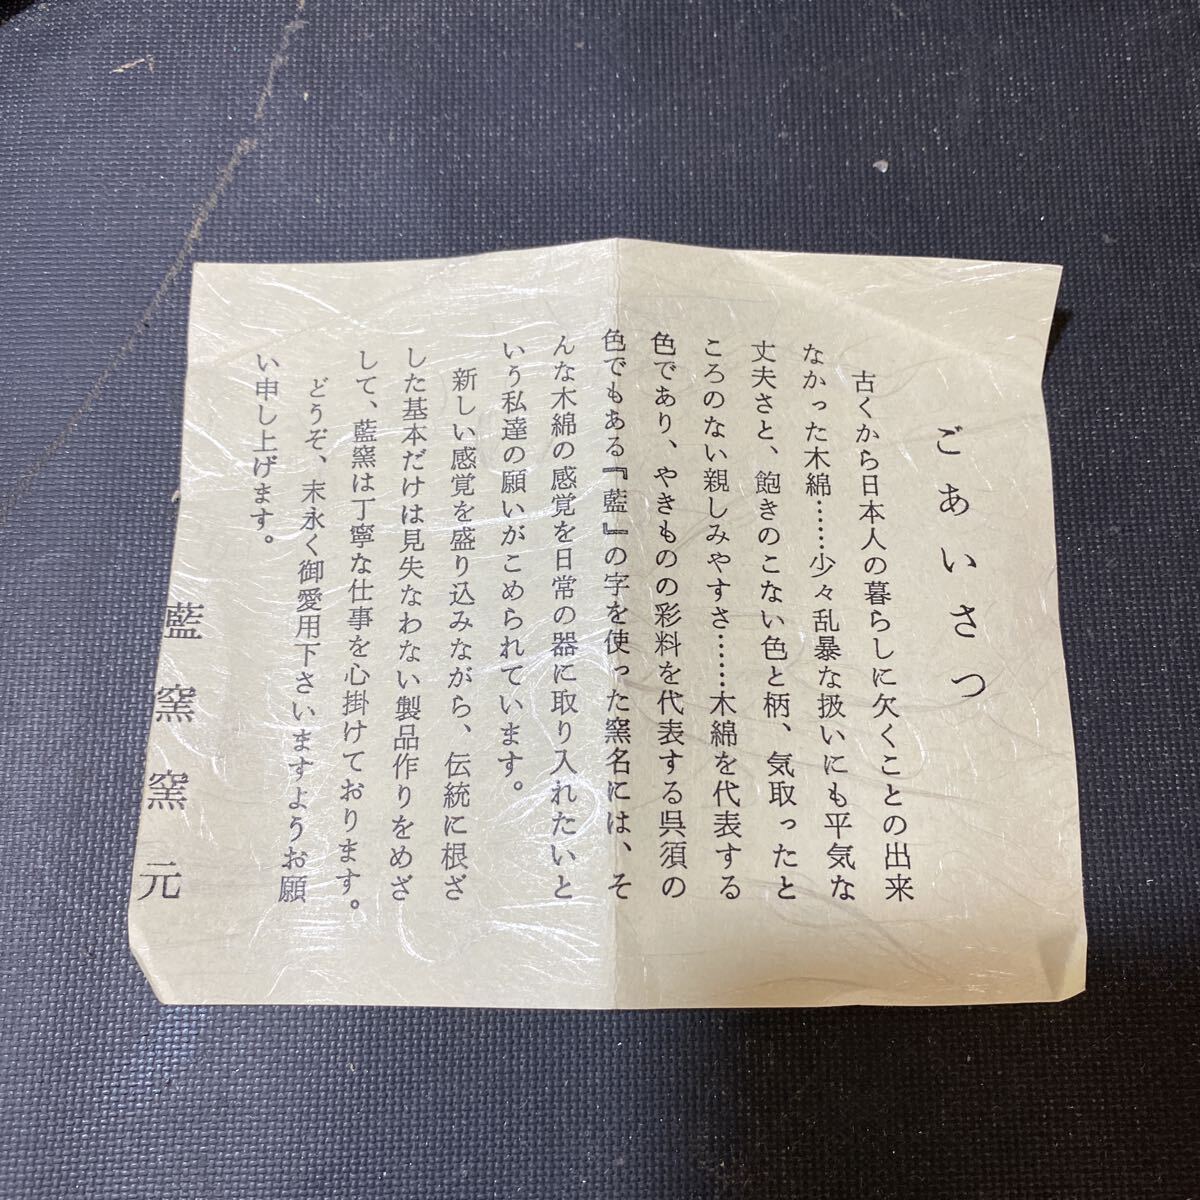 ごあいさつ
古くから日本人の暮らしに欠くことの出来
なかった木綿……少々乱暴な扱いにも平気な
丈夫さと、飽きのこない色と柄、気取ったと
ころのない親しみやすさ……木綿を代表する
色であり、やきものの彩料を代表する呉須の
色でもある『藍』の字を使った窯名には、そ
んな木綿の感覚を日常の器に取り入れたいと
いう私達の願いがこめられています。
新しい感覚を盛り込みながら、伝統に根ざ
した基本だけは見失なわない製品作りをめざ
して、藍窯は丁寧な仕事を心掛けております。
どうぞ、末永く御愛用下さいますようお願
い申し上げます。
藍窯窯元